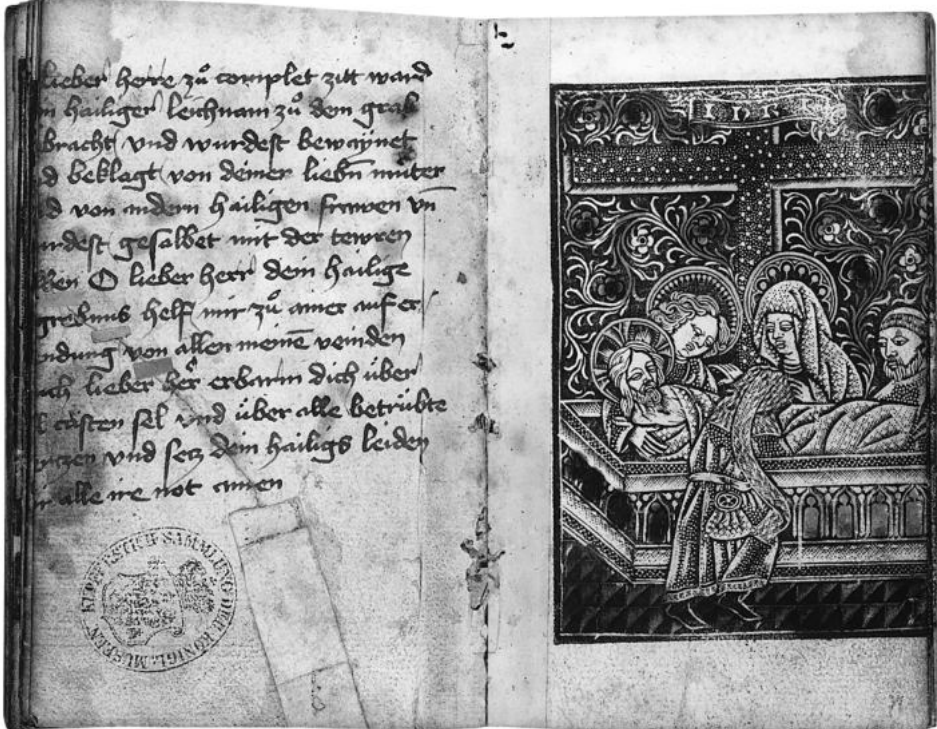 lieber herre zů complet zitt ward
hailiger leichnam zů dem grab
bracht und wurdest bewaynet
beklagt von deiner liebn̄ muter
von andern hailigen frawen vn̄
gesalbet mit der tewren
O lieber herr dein hailige
helf mir zů ainer auf er
von allen meinē veinden
lieber her erbarm dich über
sel und über alle betrübte
und secz dein hailigs leiden
alle ire not amen
KUPFERSTICH SAMMLUNG DER KÖNIGL. MUSEEN